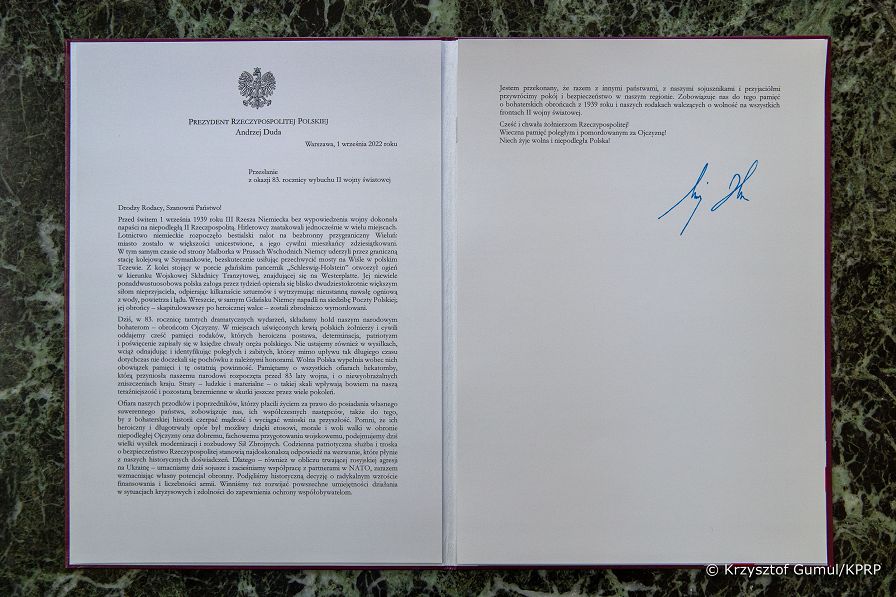 PREZYDENT RZECZYPOSPOLITEJ POLSKIEJ
Andrzej Duda
Warszawa, 1 września 2022 roku
Przesłanie
z okazji 83. rocznicy wybuchu II wojny światowej
Drodzy Rodacy, Szanowni Państwo!
Przed świtem 1 września 1939 roku III Rzesza Niemiecka bez wypowiedzenia wojny dokonała
napaści na niepodległą II Rzeczpospolitą. Hitlerowcy zaatakowali jednocześnie w wielu miejscach.
Lotnictwo niemieckie rozpoczęło bestialski nalot na bezbronny przygraniczny Wieluń:
miasto zostało w większości unicestwione, a jego cywilni mieszkańcy zdziesiątkowani.
W tym samym czasie od strony Malborka w Prusach Wschodnich Niemcy uderzyli przez graniczną
stację kolejową w Szymankowie, bezskutecznie usiłując przechwycić mosty na Wiśle w polskim
Tczewie. Z kolei stojący w porcie gdańskim pancernik „Schleswig-Holstein” otworzył ogień
w kierunku Wojskowej Składnicy Tranzytowej, znajdującej się na Westerplatte. Jej niewiele
ponaddwustuosobowa polska załoga przez tydzień opierała się blisko dwudziestokrotnie większym
siłom nieprzyjaciela, odpierając kilkanaście szturmów i wytrzymując nieustanną nawałę ogniową
z wody, powietrza i lądu. Wreszcie, w samym Gdańsku Niemcy napadli na siedzibę Poczty Polskiej;
jej obrońcy – skapitulowawszy po heroicznej walce – zostali zbrodniczo wymordowani.
Dziś, w 83. rocznicę tamtych dramatycznych wydarzeń, składamy hołd naszym narodowym
bohaterom – obrońcom Ojczyzny. W miejscach uświęconych krwią polskich żołnierzy i cywili
oddajemy cześć pamięci rodaków, których heroiczna postawa, determinacja, patriotyzm
i poświęcenie zapisały się w księdze chwały oręża polskiego. Nie ustajemy również w wysiłkach,
wciąż odnajdując i identyfikując poległych i zabitych, którzy mimo upływu tak długiego czasu
dotychczas nie doczekali się pochówku z należnymi honorami. Wolna Polska wypełnia wobec nich
obowiązek pamięci i tę ostatnią powinność. Pamiętamy o wszystkich ofiarach hekatomby,
którą przyniosła naszemu narodowi rozpoczęta przed 83 laty wojna, i o niewyobrażalnych
zniszczeniach kraju. Straty – ludzkie i materialne – o takiej skali wpływają bowiem na naszą
teraźniejszość i pozostaną brzemienne w skutki jeszcze przez wiele pokoleń.
Ofiara naszych przodków i poprzedników, którzy płacili życiem za prawo do posiadania własnego
suwerennego państwa, zobowiązuje nas, ich współczesnych następców, także do tego,
by z bohaterskiej historii czerpać mądrość i wyciągać wnioski na przyszłość. Pomni, że ich
heroiczny i długotrwały opór był możliwy dzięki etosowi, morale i woli walki w obronie
niepodległej Ojczyzny oraz dobremu, fachowemu przygotowaniu wojskowemu, podejmujemy dziś
wielki wysiłek modernizacji i rozbudowy Sił Zbrojnych. Codzienna patriotyczna służba i troska
o bezpieczeństwo Rzeczypospolitej stanowią najdoskonalszą odpowiedź na wezwanie, które płynie
z naszych historycznych doświadczeń. Dlatego – również w obliczu trwającej rosyjskiej agresji
na Ukrainę – umacniamy dziś sojusze i zacieśniamy współpracę z partnerami w NATO, zarazem
wzmacniając własny potencjał obronny. Podjęliśmy historyczną decyzję o radykalnym wzroście
finansowania i liczebności armii. Winniśmy też rozwijać powszechne umiejętności działania
w sytuacjach kryzysowych i zdolności do zapewnienia ochrony współobywatelom.
Jestem przekonany, że razem z innymi państwami, z naszymi sojusznikami i przyjaciółmi
przywrócimy pokój i bezpieczeństwo w naszym regionie. Zobowiązuje nas do tego pamięć
o bohaterskich obrońcach z 1939 roku i naszych rodakach walczących o wolność na wszystkich
frontach II wojny światowej.
Cześć i chwała żołnierzom Rzeczypospolitej!
Wieczna pamięć poległym i pomordowanym za Ojczyznę!
Niech żyje wolna i niepodległa Polska!
© Krzysztof Gumul/KPRP